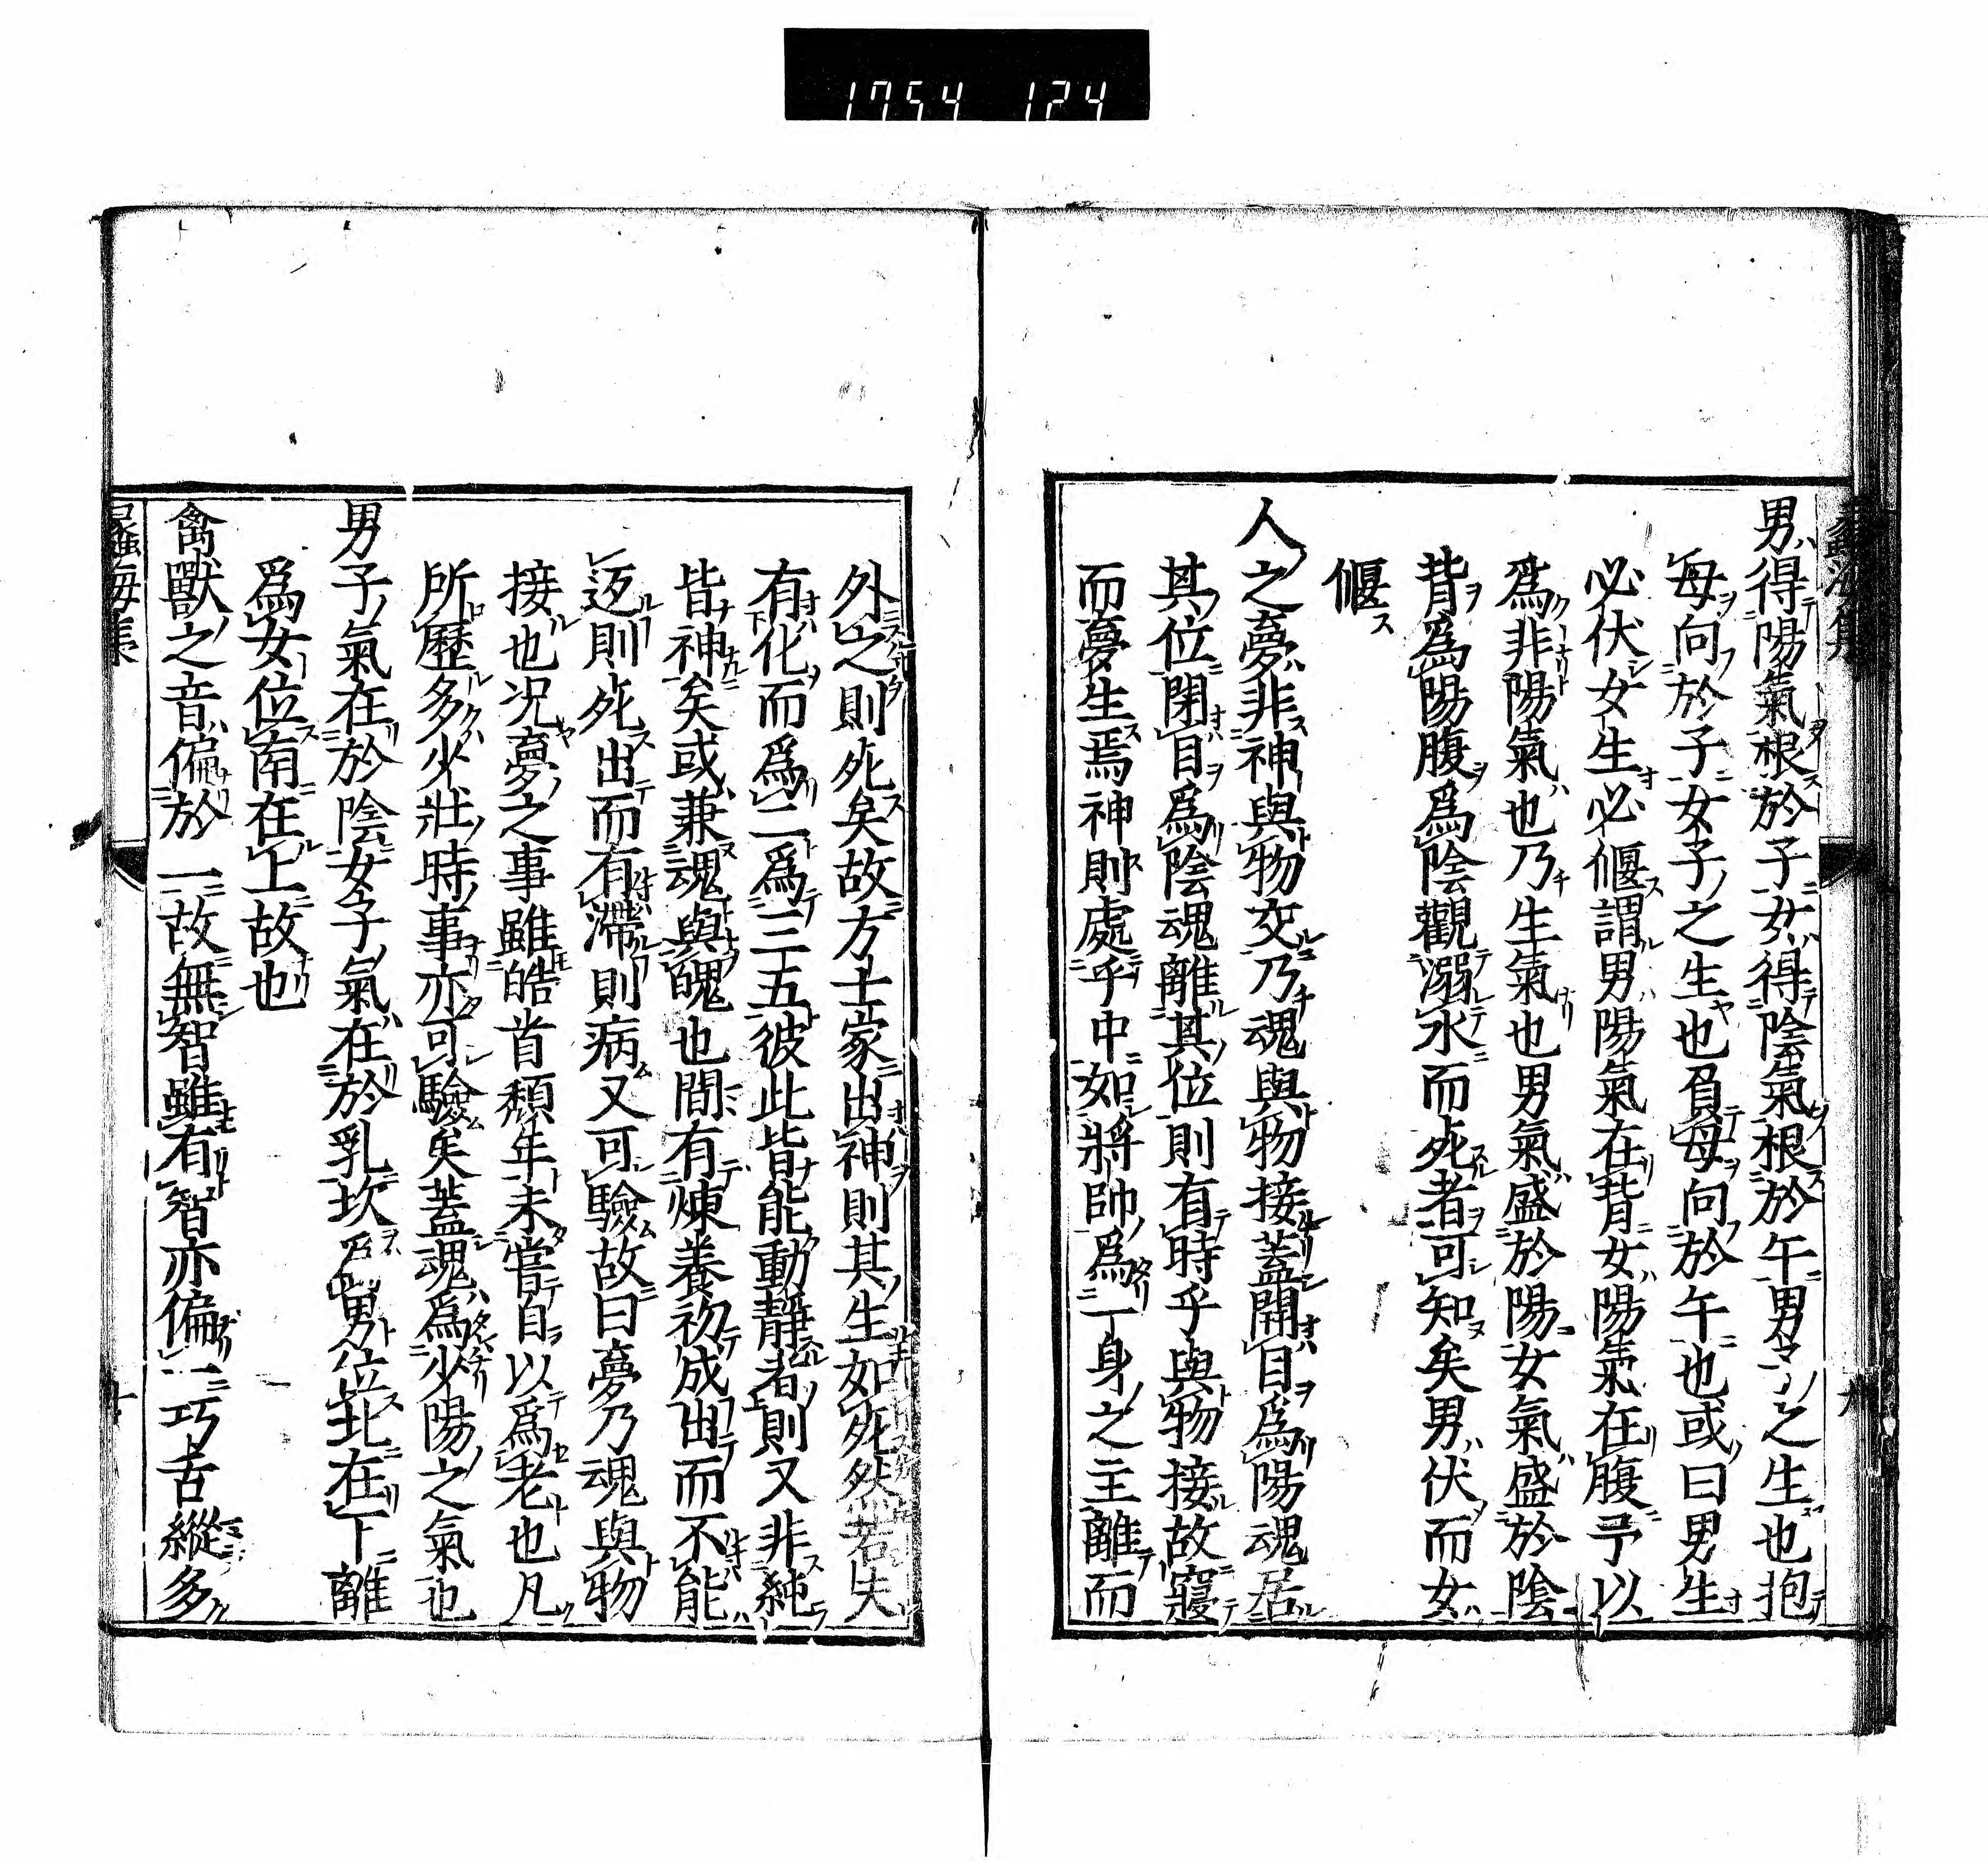 1754 124
蠡海集
九
男得陽氣根於子女得陰氣根於午男子之生也抱
母向於子女子之生也負母向於午也或曰男生
必伏女生必偃謂男陽氣在背女陽氣在腹予以
爲非陽氣也乃生氣也男氣盛於陽女氣盛於陰
背爲陽腹爲陰觀溺水而死者可知矣男伏而女
偃
人之夢非神與物交乃魂與物接蓋開目爲陽魂居
其位閉目爲陰魂離其位則有時乎與物接故寢
而夢生焉神則處乎中如將帥爲一身之主離而
外之則死矣故方士家出神則其生如死然若失
有化而爲二爲三五彼此皆能動靜者則又非純
皆神矣或兼魂與魄也間有煉養初成出而不能
返則死出而有滯則病又可驗故曰夢乃魂與物
接也況夢之事雖皓首頹年未嘗自以爲老也凡
所歷多少壯時事亦可驗矣蓋魂爲少陽之氣也
男子氣在於陰女子氣在於乳坎男位北在下離
爲女位南在上故也
禽獸之音偏於一故無智雖有智亦偏一巧舌縱多
蠡海集
十